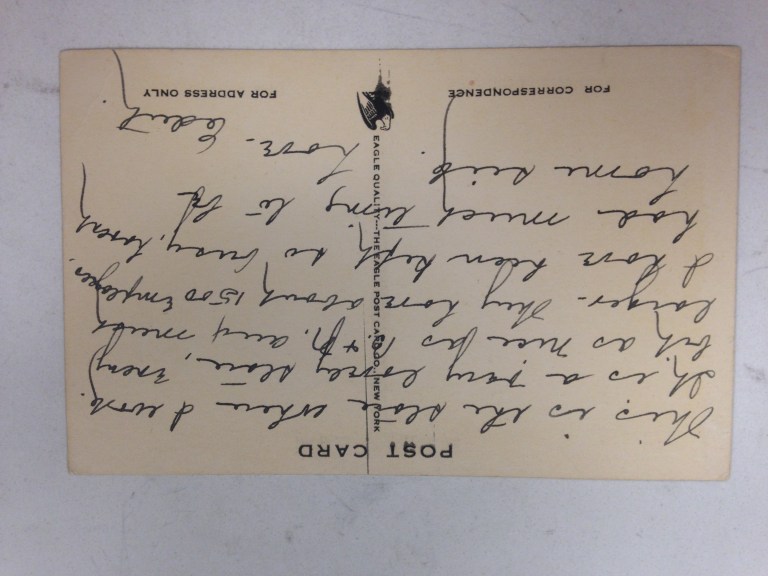 POST CARD
This is the store where I work.
It is a very lovely store, every
bit as nice as + P. only much
larger. They have about 1500 Employees.
I have been kept so busy, havent
had much time to get
home sick
Love. Edith
EAGLE QUALITY—THE EAGLE POST CARD CO., NEW YORK
FOR CORRESPONDENCE
FOR ADDRESS ONLY